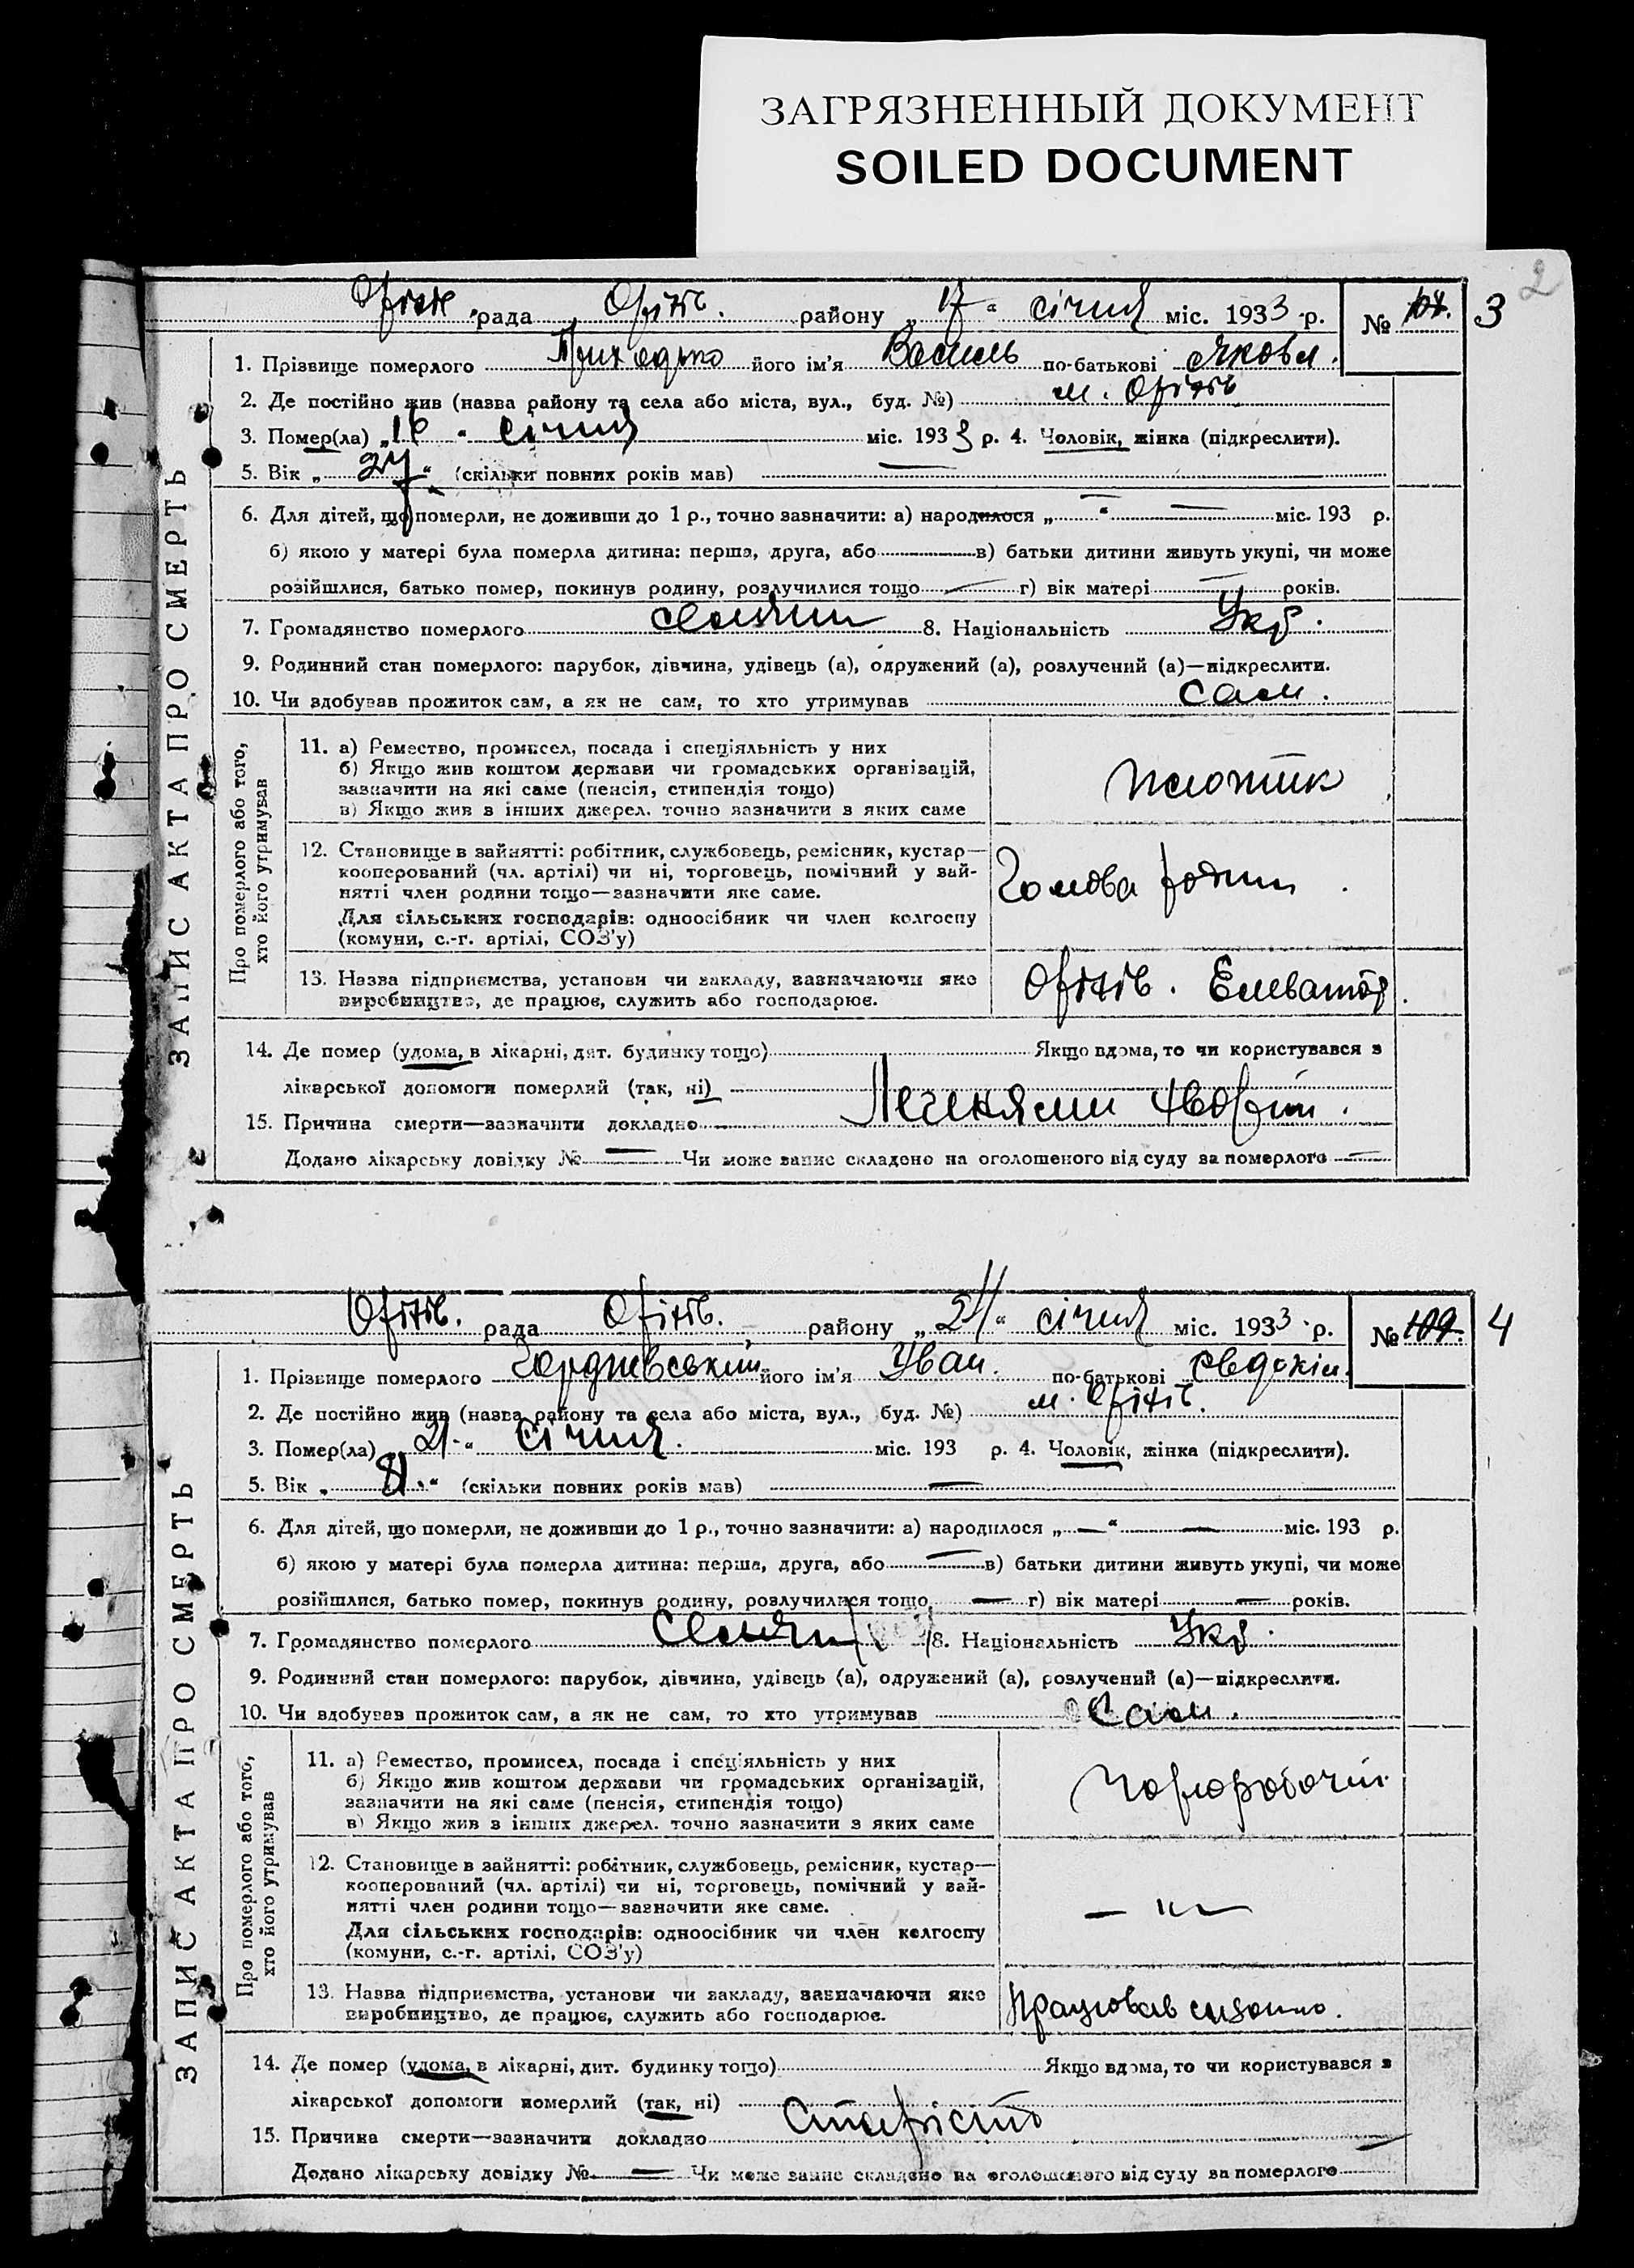 ЗАГРЯЗНЕННЫЙ ДОКУМЕНТ
SOILED DOCUMENT
2
рада Оріхів. району „17" січня міс. 1933 р. № 3
1. Прізвище померлого Приходько його ім'я Василь по-батькові Яковл.
2. Де постійно жив (назва району та села або міста, вул., буд. №) м. Оріхів
3. Помер(ла) „16" січня міс. 1933 р. 4. Чоловік, жінка (підкреслити).
5. Вік „27" (скільки повних років мав) —
6. Для дітей, що померли, не доживши до 1 р., точно зазначити: а) народилося „—" — міс. 193 р.
б) якою у матері була померла дитина: перша, друга, або в) батьки дитини живуть укупі, чи може
розійшлися, батько помер, покинув родину, розлучилися тощо — г) вік матері — років.
7. Громадянство померлого 8. Національність Укр.
9. Родинний стан померлого: парубок, дівчина, удівець (а), одружений (а), розлучений (а)—підкреслити.
10. Чи здобував прожиток сам, а як не сам, то хто утримував сам.
ЗАПИС АКТА ПРО СМЕРТЬ
Про померлого або того,
хто його утримував
11. а) Ремество, промисел, посада і спеціяльність у них
б) Якщо жив коштом держави чи громадських організацій,
зазначити на які саме (пенсія, стипендія тощо)
в) Якщо жив з інших джерел. точно зазначити з яких саме
плотнік
12. Становище в зайнятті: робітник, службовець, ремісник, кустар—
кооперований (чл. артілі) чи ні, торговець, помічний у зай-
нятті член родини тощо—зазначити яке саме.
Для сільських господарів: одноосібник чи член колгоспу
(комуни, с.-г. артілі, СОЗ'у)
Голова родини.
13. Назва підприємства, установи чи закладу, зазначаючи яке
виробництво, де працює, служить або господарює.
Оріхів. Елеватор.
14. Де помер (удома, в лікарні, дит. будинку тощо) Якщо вдома, то чи користувався з
лікарської допомоги померлий (так, ні)
15. Причина смерти—зазначити докладно хворий.
Додано лікарську довідку № — Чи може запис складено на оголошеного від суду за померлого —
Оріхів. рада Оріхів. району „21" січня міс. 1933 р. № 109. 4
1. Прізвище померлого його ім'я Іван. по-батькові Євдокім.
2. Де постійно жив (назва району та села або міста, вул., буд. №) м. Оріхів.
3. Помер(ла) „21" січня. міс. 193 р. 4. Чоловік, жінка (підкреслити).
5. Вік (скільки повних років мав) —
6. Для дітей, що померли, не доживши до 1 р., точно зазначити: а) народилося „—" — міс. 193 р.
б) якою у матері була померла дитина: перша, друга, або — в) батьки дитини живуть укупі, чи може
розійшлися, батько помер, покинув родину, розлучилися тощо — г) вік матері — років.
7. Громадянство померлого 8. Національність Укр.
9. Родинний стан померлого: парубок, дівчина, удівець (а), одружений (а), розлучений (а)—підкреслити.
10. Чи здобував прожиток сам, а як не сам, то хто утримував Сам.
ЗАПИС АКТА ПРО СМЕРТЬ
Про померлого або того,
хто його утримував
11. а) Ремество, промисел, посада і спеціяльність у них
б) Якщо жив коштом держави чи громадських організацій,
зазначити на які саме (пенсія, стипендія тощо)
в) Якщо жив з інших джерел. точно зазначити з яких саме
Чорноробочий
12. Становище в зайнятті: робітник, службовець, ремісник, кустар—
кооперований (чл. артілі) чи ні, торговець, помічний у зай-
нятті член родини тощо—зазначити яке саме.
Для сільських господарів: одноосібник чи член колгоспу
(комуни, с.-г. артілі, СОЗ'у)
— " —
13. Назва підприємства, установи чи закладу, зазначаючи яке
виробництво, де працює, служить або господарює.
Працював
14. Де помер (удома, в лікарні, дит. будинку тощо) Якщо вдома, то чи користувався з
лікарської допомоги померлий (так, ні)
15. Причина смерти—зазначити докладно Старість
Додано лікарську довідку № — Чи може запис складено на оголошеного від суду за померлого —